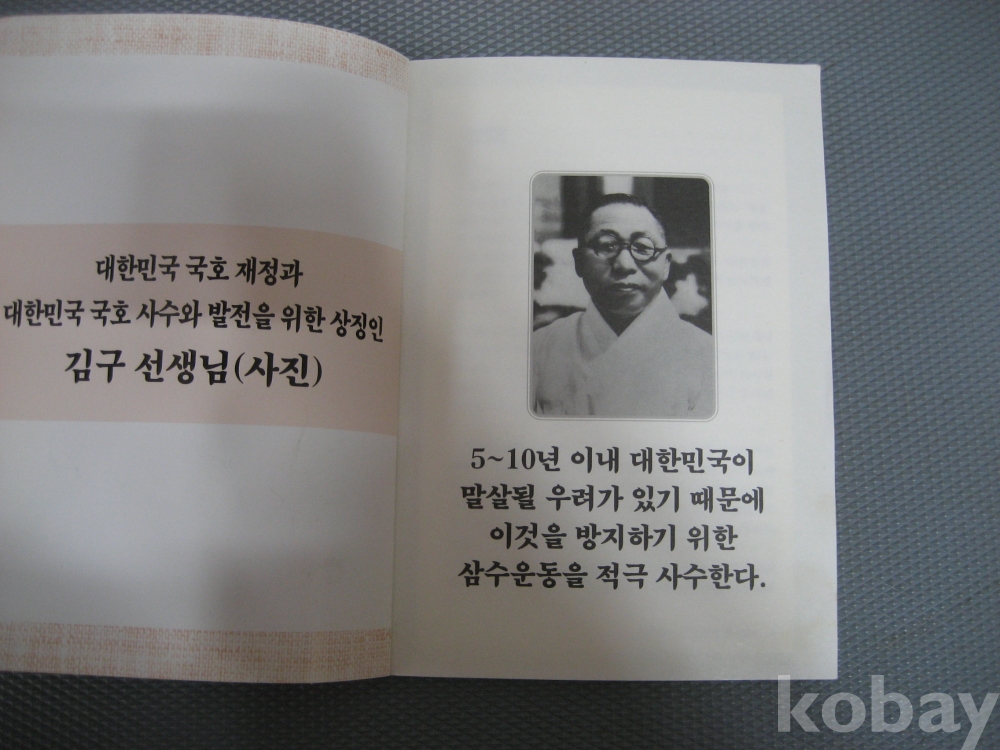 대한민국 국호 재정과
대한민국 국호 사수와 발전을 위한 상징인
김구 선생님(사진)
5~10년 이내 대한민국이
말살될 우려가 있기 때문에
이것을 방지하기 위한
삼수운동을 적극 사수한다.
kobay